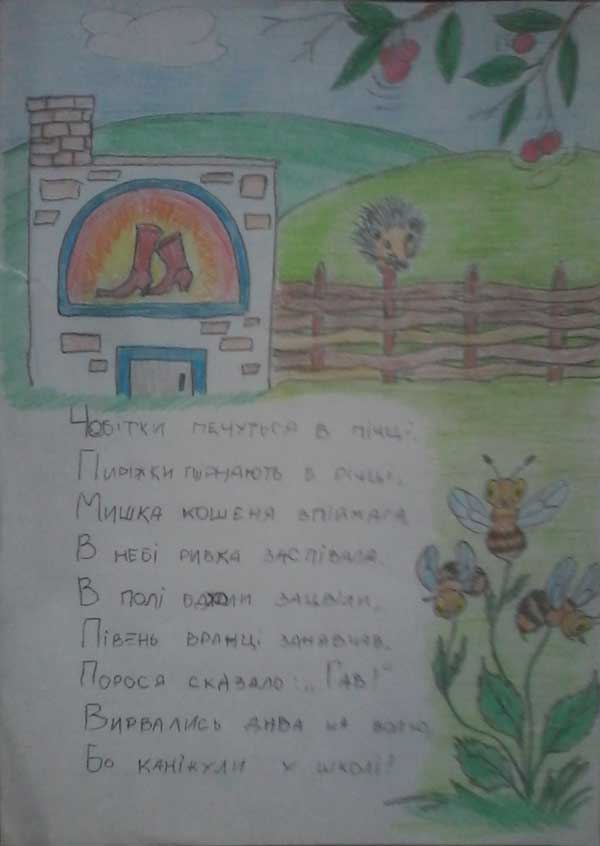 Чобітки печуться в пічці.
Пиріжки пірнають в річці.
Мишка кошеня впіймала
В небі рибка заспівала.
В полі бджоли зацвіли,
Півень вранці занявчав.
Порося сказало: „Гав!"
Вирвались дива на волю,
Бо канікули у школі!